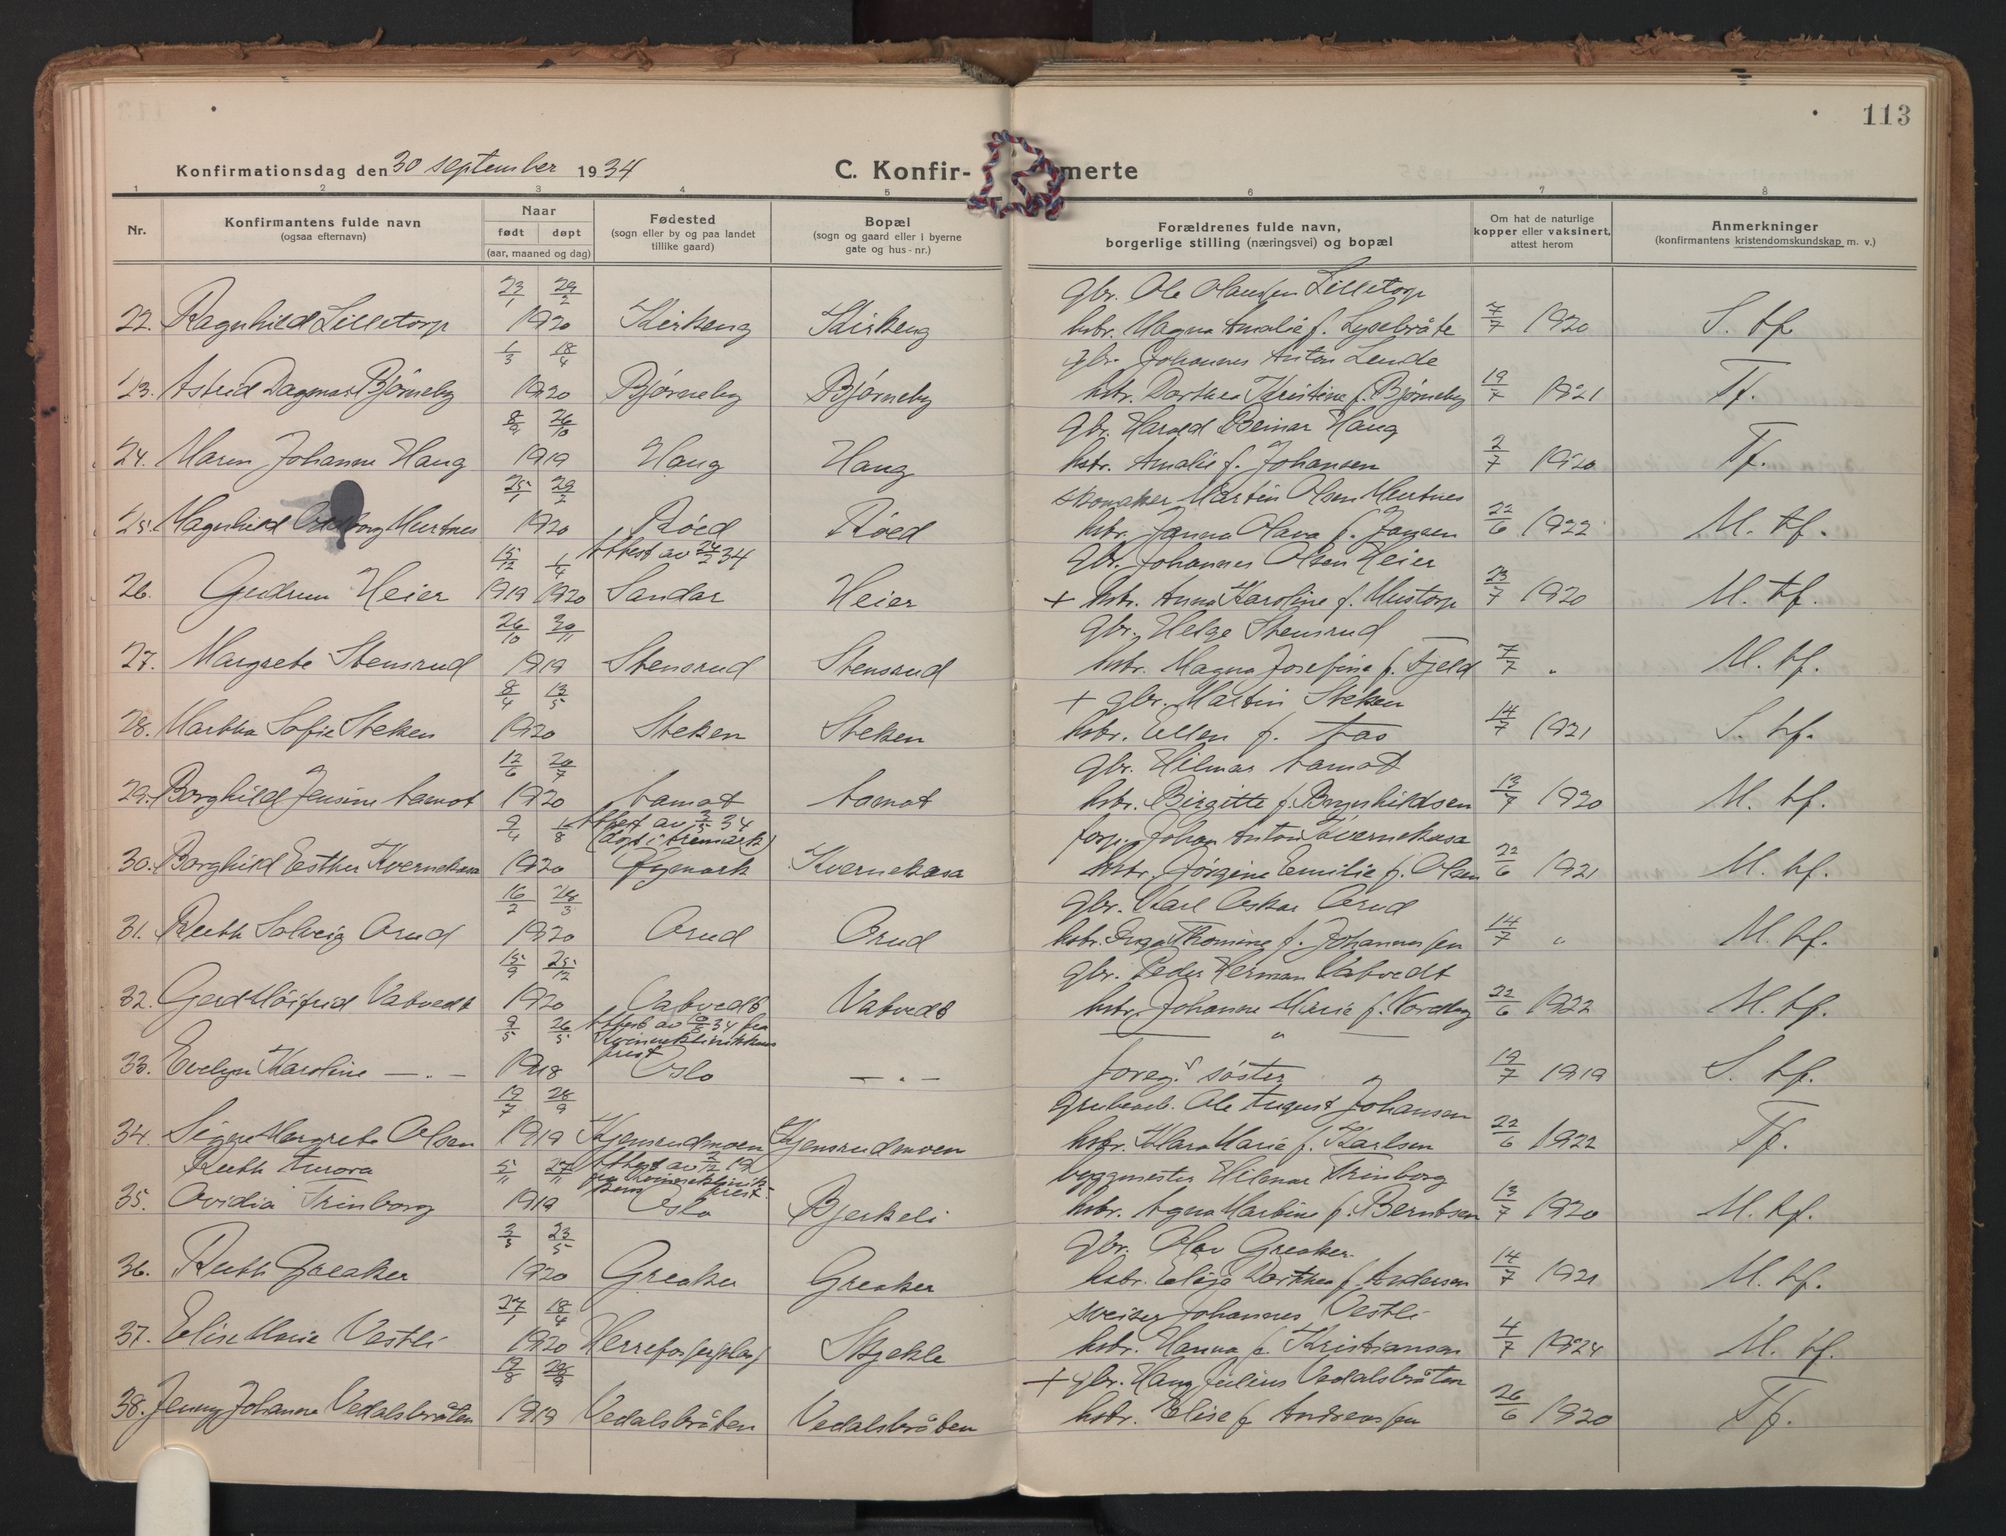 113
Konfirmationsdag den 30 september 1934
C. Konfir- merte
1 2 3 4 5 6 7 8
Nr.
Konfirmantens fulde navn
(ogsaa efternavn)
Naar
født døpt
(aar, maaned og dag)
Fødested
(sogn eller by og paa landet
tillike gaard)
Bopæl
(sogn og gaard eller i byerne
gate og hus-nr.)
Forældrenes fulde navn,
borgerlige stilling (næringsvei) og bopæl
Om hat de naturlige
kopper eller vaksinert,
attest herom
Anmerkninger
(konfirmantens kristendomskundskap m. v.)
23/1 29/2 gbr. Ole Olaussen Lilletorp
22. Ragnhild Lilletorp 1920 Kirkeng Kirkeng hstr. Magna Amalie f. Lysebråte 7/7 1920 S. tf.
1/3 18/4 gbr. Johannes Anton Lende
23. Astrid Dagmar Bjørneby 1920 Bjørneby Bjørneby hstr. Dorthea Kristine f. Bjørneby 19/7 1921 Tf.
8/9 26/10 gbr. Harald Reinar Haug
24. Maren Johanne Haug 1919 Haug Haug hstr. Amalie f. Johansen 2/7 1920 Tf.
25/1 29/2 skomaker Martin Olsen Murtnes
25. Magnhild Murtnes 1920 Røed Røed hstr. Janna Olava f. Jansen 22/6 1922 M. tf.
15/12 1/4 Attest av 24/2 34 gbr. Johannes Olsen Heier
26. Gudrun Heier 1919 1920 Sandar Heier + hstr. Anna Karoline f. Mustorp 23/7 1920 M. tf.
26/10 30/11 gbr. Helge Stensrud
27. Margrete Stensrud 1919 Stensrud Stensrud hstr. Magna Josefine f. Fjeld 7/7 " M. tf.
8/4 13/5 + gbr. Martin Steken
28. Martha Sofie Steken 1920 Steken Steken hstr. Ellen f. Aas 14/7 1921 S. tf.
12/6 20/7 gbr. Hilmar Aamot
29. Borghild Jensine Aamot 1920 Aamot Aamot hstr. Birgitte f. Brynhildsen 13/7 1920 M. tf.
9/4 1/8 Attest av 3/5 34
(døpt i Aremark) forp. Johan Anton Kvernekasa
30. Borghild Esther Kvernekasa 1920 Øymark Kvernekasa hstr. Jørgine Emilie f. Olsen 22/6 1921 M. tf.
16/2 28/3 gbr. Karl Oskar Orud
31. Ruth Solveig Orud 1920 Orud Orud hstr. Inga Thomine f. Johannessen 14/7 " M. tf.
15/9 25/12 gbr. Peder Herman Vatvedt
32. Gerd Møifrid Vatvedt 1920 Vatvedt Vatvedt hstr. Johanne Marie f. Nordby 22/6 1922 M. tf.
9/5 26/5 Attest av 34 fra
Kvinneklinikkens
prest — " —
33. Evelyn Karoline — " — 1918 Oslo — " — foreg.s søster 19/7 1919 S. tf.
19/7 28/9 grubearb. Ole August Johansen
34. Signe Margrete Olsen 1919 Kjensrudmoen Kjensrudmoen hstr. Klara Marie f. Karlsen 22/6 1922 Tf.
Ruth Aurora 5/11 27/11 Attest av 3/12 19
fra Kvinneklinik-
kens prest byggmester Hilmar Trinborg
35. Ovidia Trinborg 1919 Oslo Bjerkeli hstr. Agna Martine f. Berntsen 13/7 1920 M. tf.
3/3 23/5 gbr. Olav Greaker
36. Ruth Greaker 1920 Greaker Greaker hstr. Elise Dorthea f. Andersen 14/7 1921 M. tf.
27/1 18/4 sveiser Johannes Vestli
37. Elise Marie Vestli 1920 Skjekle hstr. Hanna f. Kristiansen 4/7 1924 M. tf.
19/8 28/9 + gbr. Hans Julius Vedalsbråten
38. Jenny Johanne Vedalsbråten 1919 Vedalsbråten Vedalsbråten hstr. Elise f. Andreassen 26/6 1920 Tf.